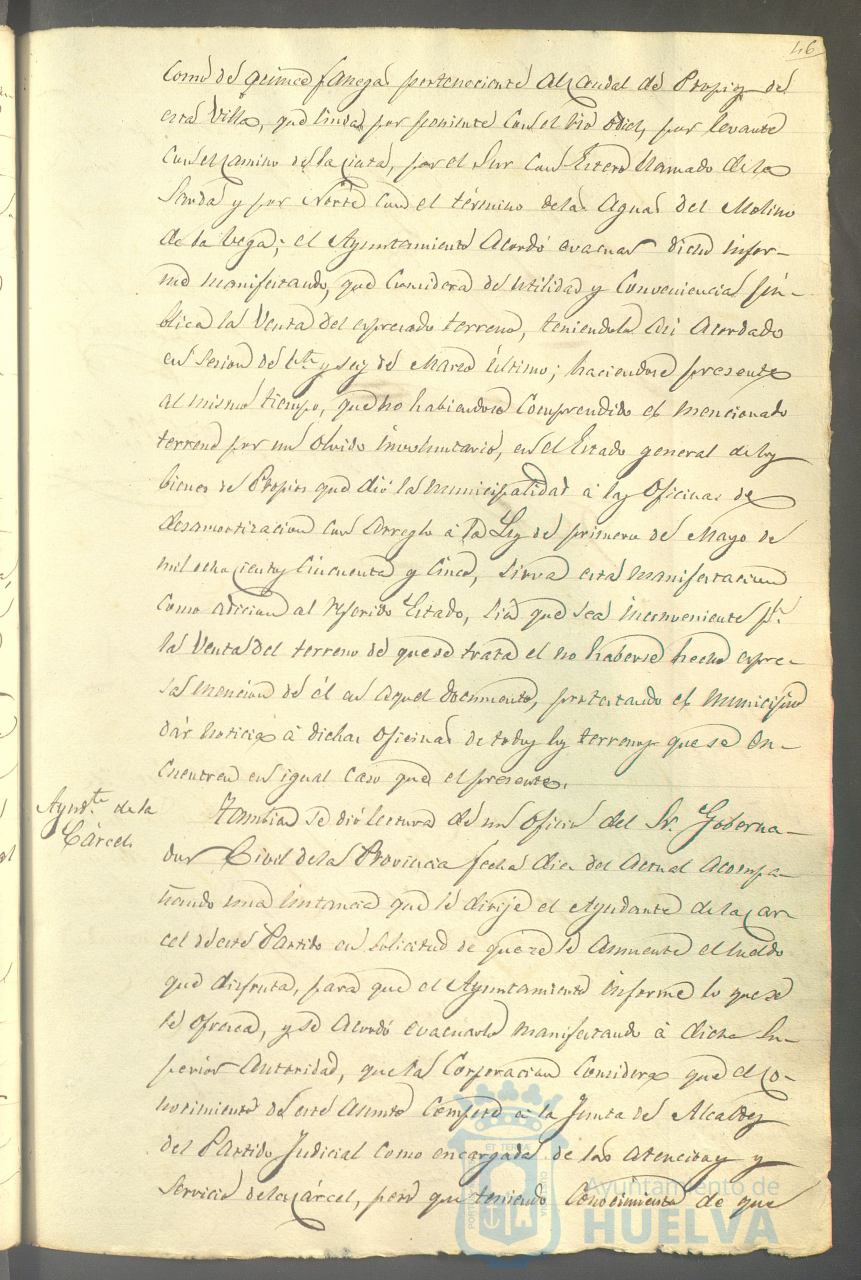 46
como de quince fanegas perteneciente al caudal de Propios de
esta Villa, que linda por poniente con el rio Odiel, por levante
con el camino de la cinta, por el Sur con Estero llamado de la
y por Norte con el término de las Aguas del Molino
de la Vega; el Ayuntamiento acordó evacuar dicho infor-
me manifestando, que considera de utilidad y conveniencia pú-
blica la Venta del expresado terreno, teniendolo asi acordado
en sesion de bte. y seis de Marzo último; haciendose presente
al mismo tiempo, que no habiendose comprendido el mencionado
terreno por un olvido involuntario, en el Estado general de los
bienes de Propios que dió la Municipalidad á las Oficinas de
desamortizacion con arreglo á la Ley de primero de Mayo de
mil ochocientos cincuenta y cinco, sirva esta manifestacion
como adicion al referido Estado, sin que sea inconveniente pa.
la Venta del terreno de que se trata el no haberse hecho espre-
sa mencion de él en aquel documento, protestando el Municipio
dar noticia á dichas oficinas de todos los terrenos que se en-
cuentren en igual caso que el presente.
Ayudte. de la
Cárcel.
Tambien se dió lectura de un oficio del Sr. Goberna-
dor Civil de la Provincia fecha diez del actual acompa-
ñando una instancia que le dirije el Ayudante de la car-
cel de este Partido en solicitud de que se le aumente el sueldo
que disfruta, para que el Ayuntamiento informe lo que se
le ofrezca, y se acordó evacuarlo manifestando á dicha Su-
perior Autoridad, que la Corporacion considera que el co-
nocimiento de este asunto compete á la Junta de Alcaldes
del Partido Judicial como encargada de las atenciones y
servicio de la cárcel, pero que teniendo conocimiento de que
Ayuntamiento de
HUELVA